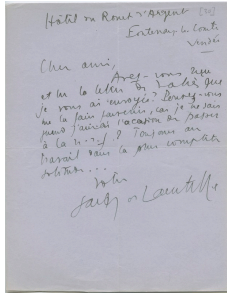 Hôtel du Rouet d'Argent
Fontenay le Comte
Vendée
Cher ami,
Avez-vous reçu
et lu la lettre de que
je vous ai envoyée? Pouvez-vous
me la faire parvenir, car je ne sais
quand j'aurai l'occasion de passer
à la n.r.f? Toujours au
travail dans la plus complète
solitude...
Votre